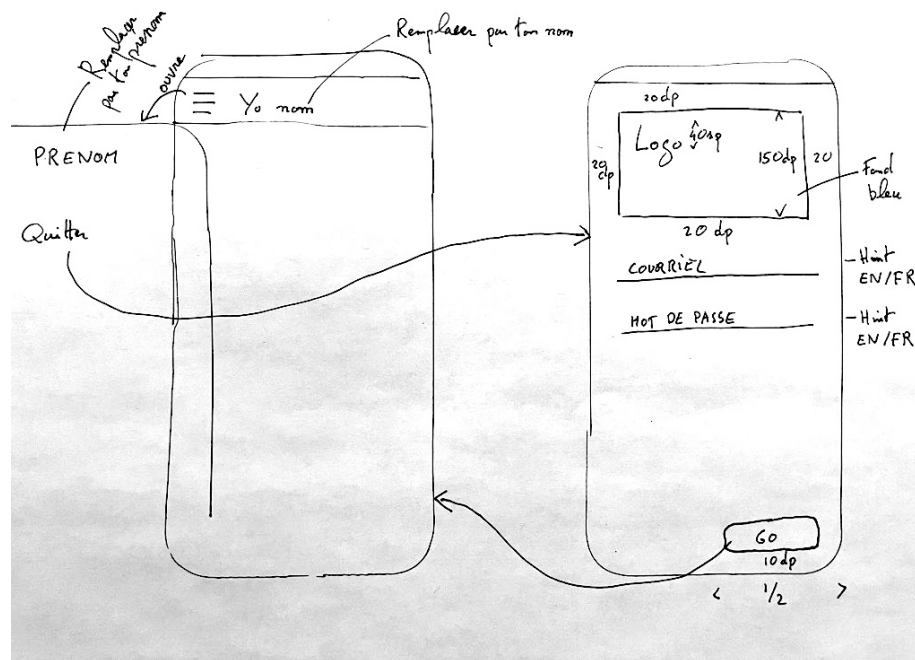 Remplacer
par ton prénom
ouvre
Remplacer par ton nom
Yo nom
PRENOM
Quitter
20dp
Logo 40sp
20
dp
150dp
20
Fond
bleu
20 dp
COURRIEL
Hint
EN/FR
MOT DE PASSE
Hint
EN/FR
GO
10dp
< 1/2 >